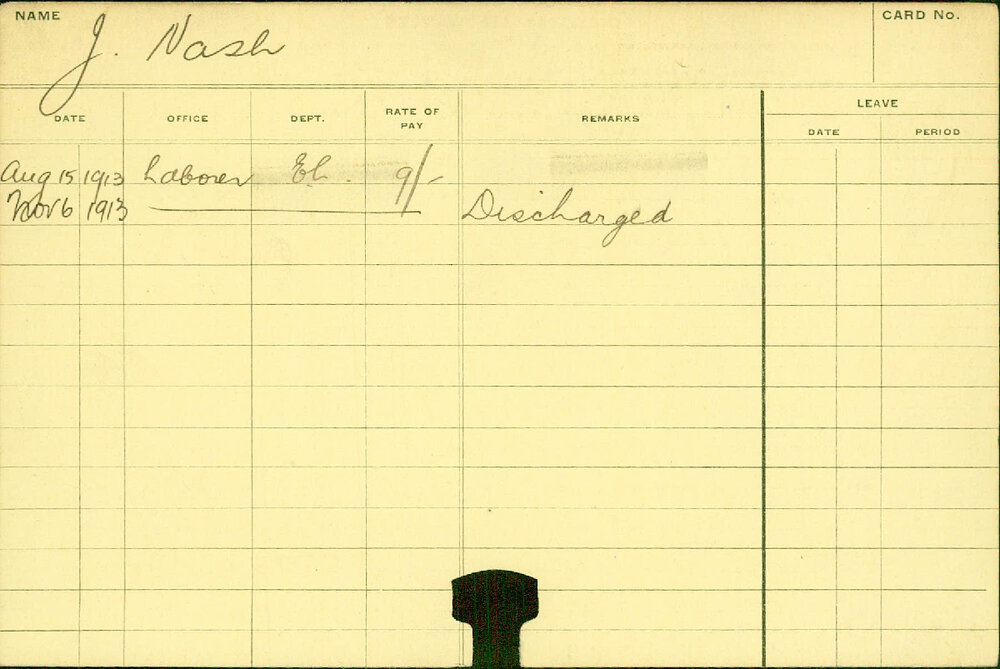 NAME J. Nash CARD No.
LEAVE
DATE OFFICE DEPT. RATE OF PAY REMARKS DATE PERIOD
Aug 15 1913 Laborer El. 9/-
Nov 6 1913 Discharged